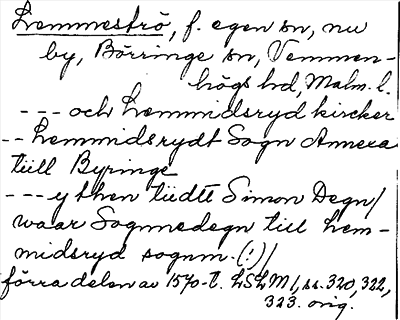 Lemmeströ, f. egen sn, nu
by, Börringe sn, Vemmen-
högs hd, Malm. l.
--- och Lemmidsryd kircker
-- Hemmidsrydt Sogn Annexa
tiill Byringe
--- y then tiidtt Simon Degn/
waar Sognnedegn till hem-
midsryd sognm. (!)/
förra delen av 1570-t. LSLM1, ss. 320, 322,
323. orig.